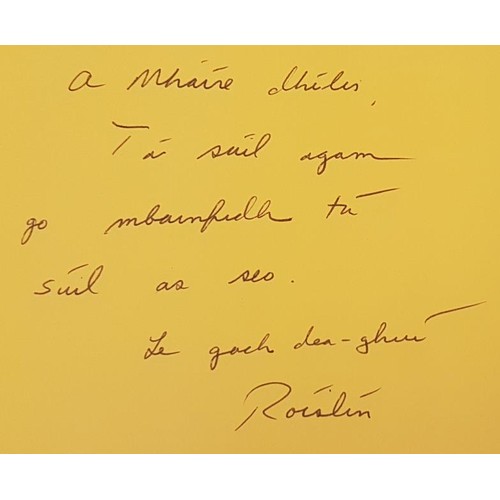 A Mháire dhílis,
Tá súil agam
go mbainfidh tú
súil as seo.
Le gach dea-ghuí
Róislín